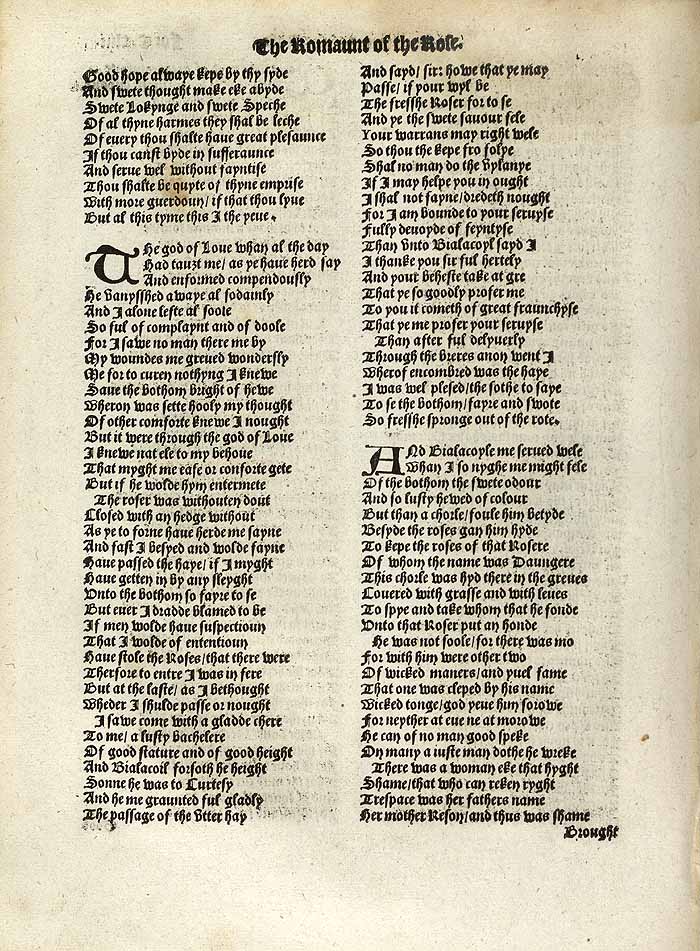 The Romaunt of the Rose.
Good hope alwaye keps by thy syde
And swete thought make eke abyde
Swete Lokynge and swete Speche
Of al thyne harmes they shal be leche
Of euery thou shalte haue great plesaunce
If thou canst byde in sufferaunce
And serue wel without fayntise
Thou shalte be quyte of thyne emprise
With more guerdoun/ if that thou lyue
But al this tyme this I the yeue.
THe god of Loue whan al the day
Had tauzt me/ as ye haue herd say
And enformed compendously
He vanysshed awaye al sodainly
And I alone lefte al soole
So ful of complaynt and of doole
For I sawe no man there me by
My woundes me greued wondersly
Me for to curen nothyng I knewe
Saue the bothom bright of hewe
Wheron was sette hooly my thought
Of other comforte knewe I nought
But it were through the god of Loue
I knewe nat ele to my behoue
That myght me ease or conforte gete
But if he wolde hym entermete
The roser was withouten dout
Closed with an hedge without
As ye to forne haue herde me sayne
And fast I besyed and wolde fayne
Haue passed the haye/ if I myght
Haue getten in by any sleyght
Vnto the bothom so fayre to se
But euer I dradde blamed to be
If men wolde haue suspectioun
That I wolde of ententioun
Haue stole the Roses/ that there were
Therfore to entre I was in fere
But at the laste/ as I bethought
Wheder I shulde passe or nought
I sawe come with a gladde chere
To me/ a lusty bachelere
Of good stature and of good height
And Bialacoil forsoth he height
Sonne he was to Curtesy
And he me graunted ful gladly
The passage of the vtter hay
And sayd/ sir: howe that ye may
Passe/ if your wyl be
The fresshe Roser for to se
And ye the swete sauour fele
Your warrans may right wele
So thou the kepe fro folye
Shal no man do the vylanye
If I may helpe you in ought
I shal not fayne/ dredeth nought
For I am bounde to your seruyse
Fully deuoyde of feyntyse
Than vnto Bialacoyl sayd I
I thanke you sir ful hertely
And your beheste take at gre
That ye so goodly profer me
To you it cometh of great fraunchyse
That ye me profer your seruyse
Than after ful delyuerly
Through the breres anon went I
Wherof encombred was the haye
I was wel plesed/ the sothe to saye
To se the bothom/ fayre and swote
So fresshe spronge out of the rote.
ANd Bialacoyle me serued wele
Whan I so nyghe me might fele
Of the bothom the swete odour
And so lusty hewed of colour
But than a chorle/ foule him betyde
Besyde the roses gan him hyde
To kepe the roses of that Rosere
Of whom the name was Daungere
This chorle was hyd there in the greues
Couered with grasse and with leues
To spye and take whom that he fonde
Vnto that Roser put an honde
He was not soole/ for there was mo
For with him were other two
Of wicked maners/ and yuel fame
That one was cleped by his name
Wicked tonge/ god yeue him sorowe
For neyther at eue ne at morowe
He can of no man good speke
On many a iuste man dothe he wreke
There was a woman eke that hyght
Shame/ that who can reken ryght
Trespace was her fathers name
Her mother Reson/ and thus was shame
Brought